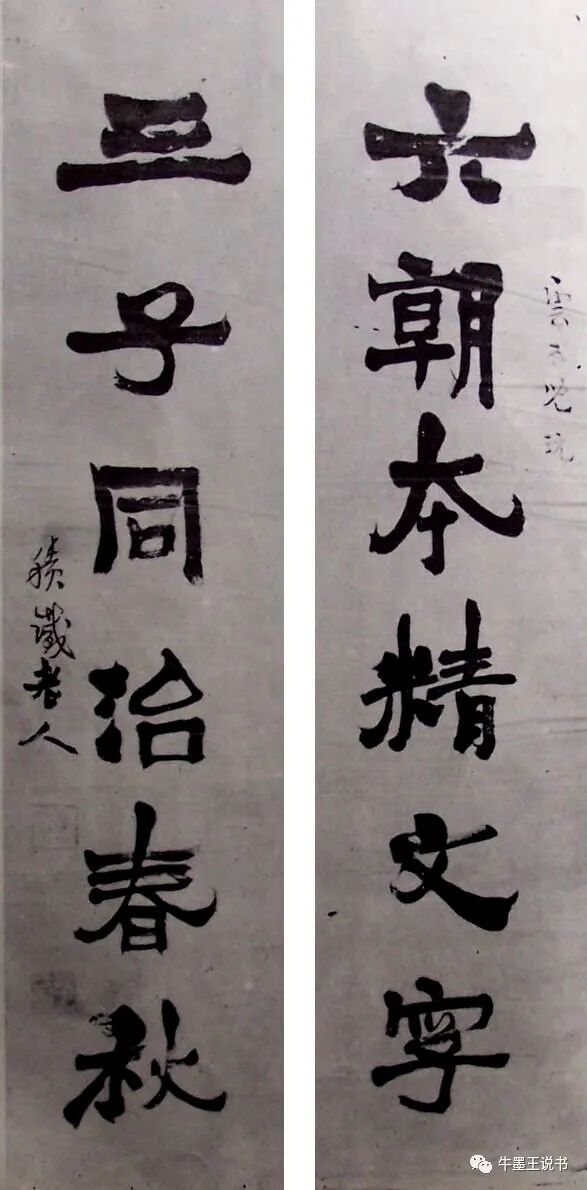 雲兄玩
六朝本精文字
三子同治春秋
老人
牛墨王说书